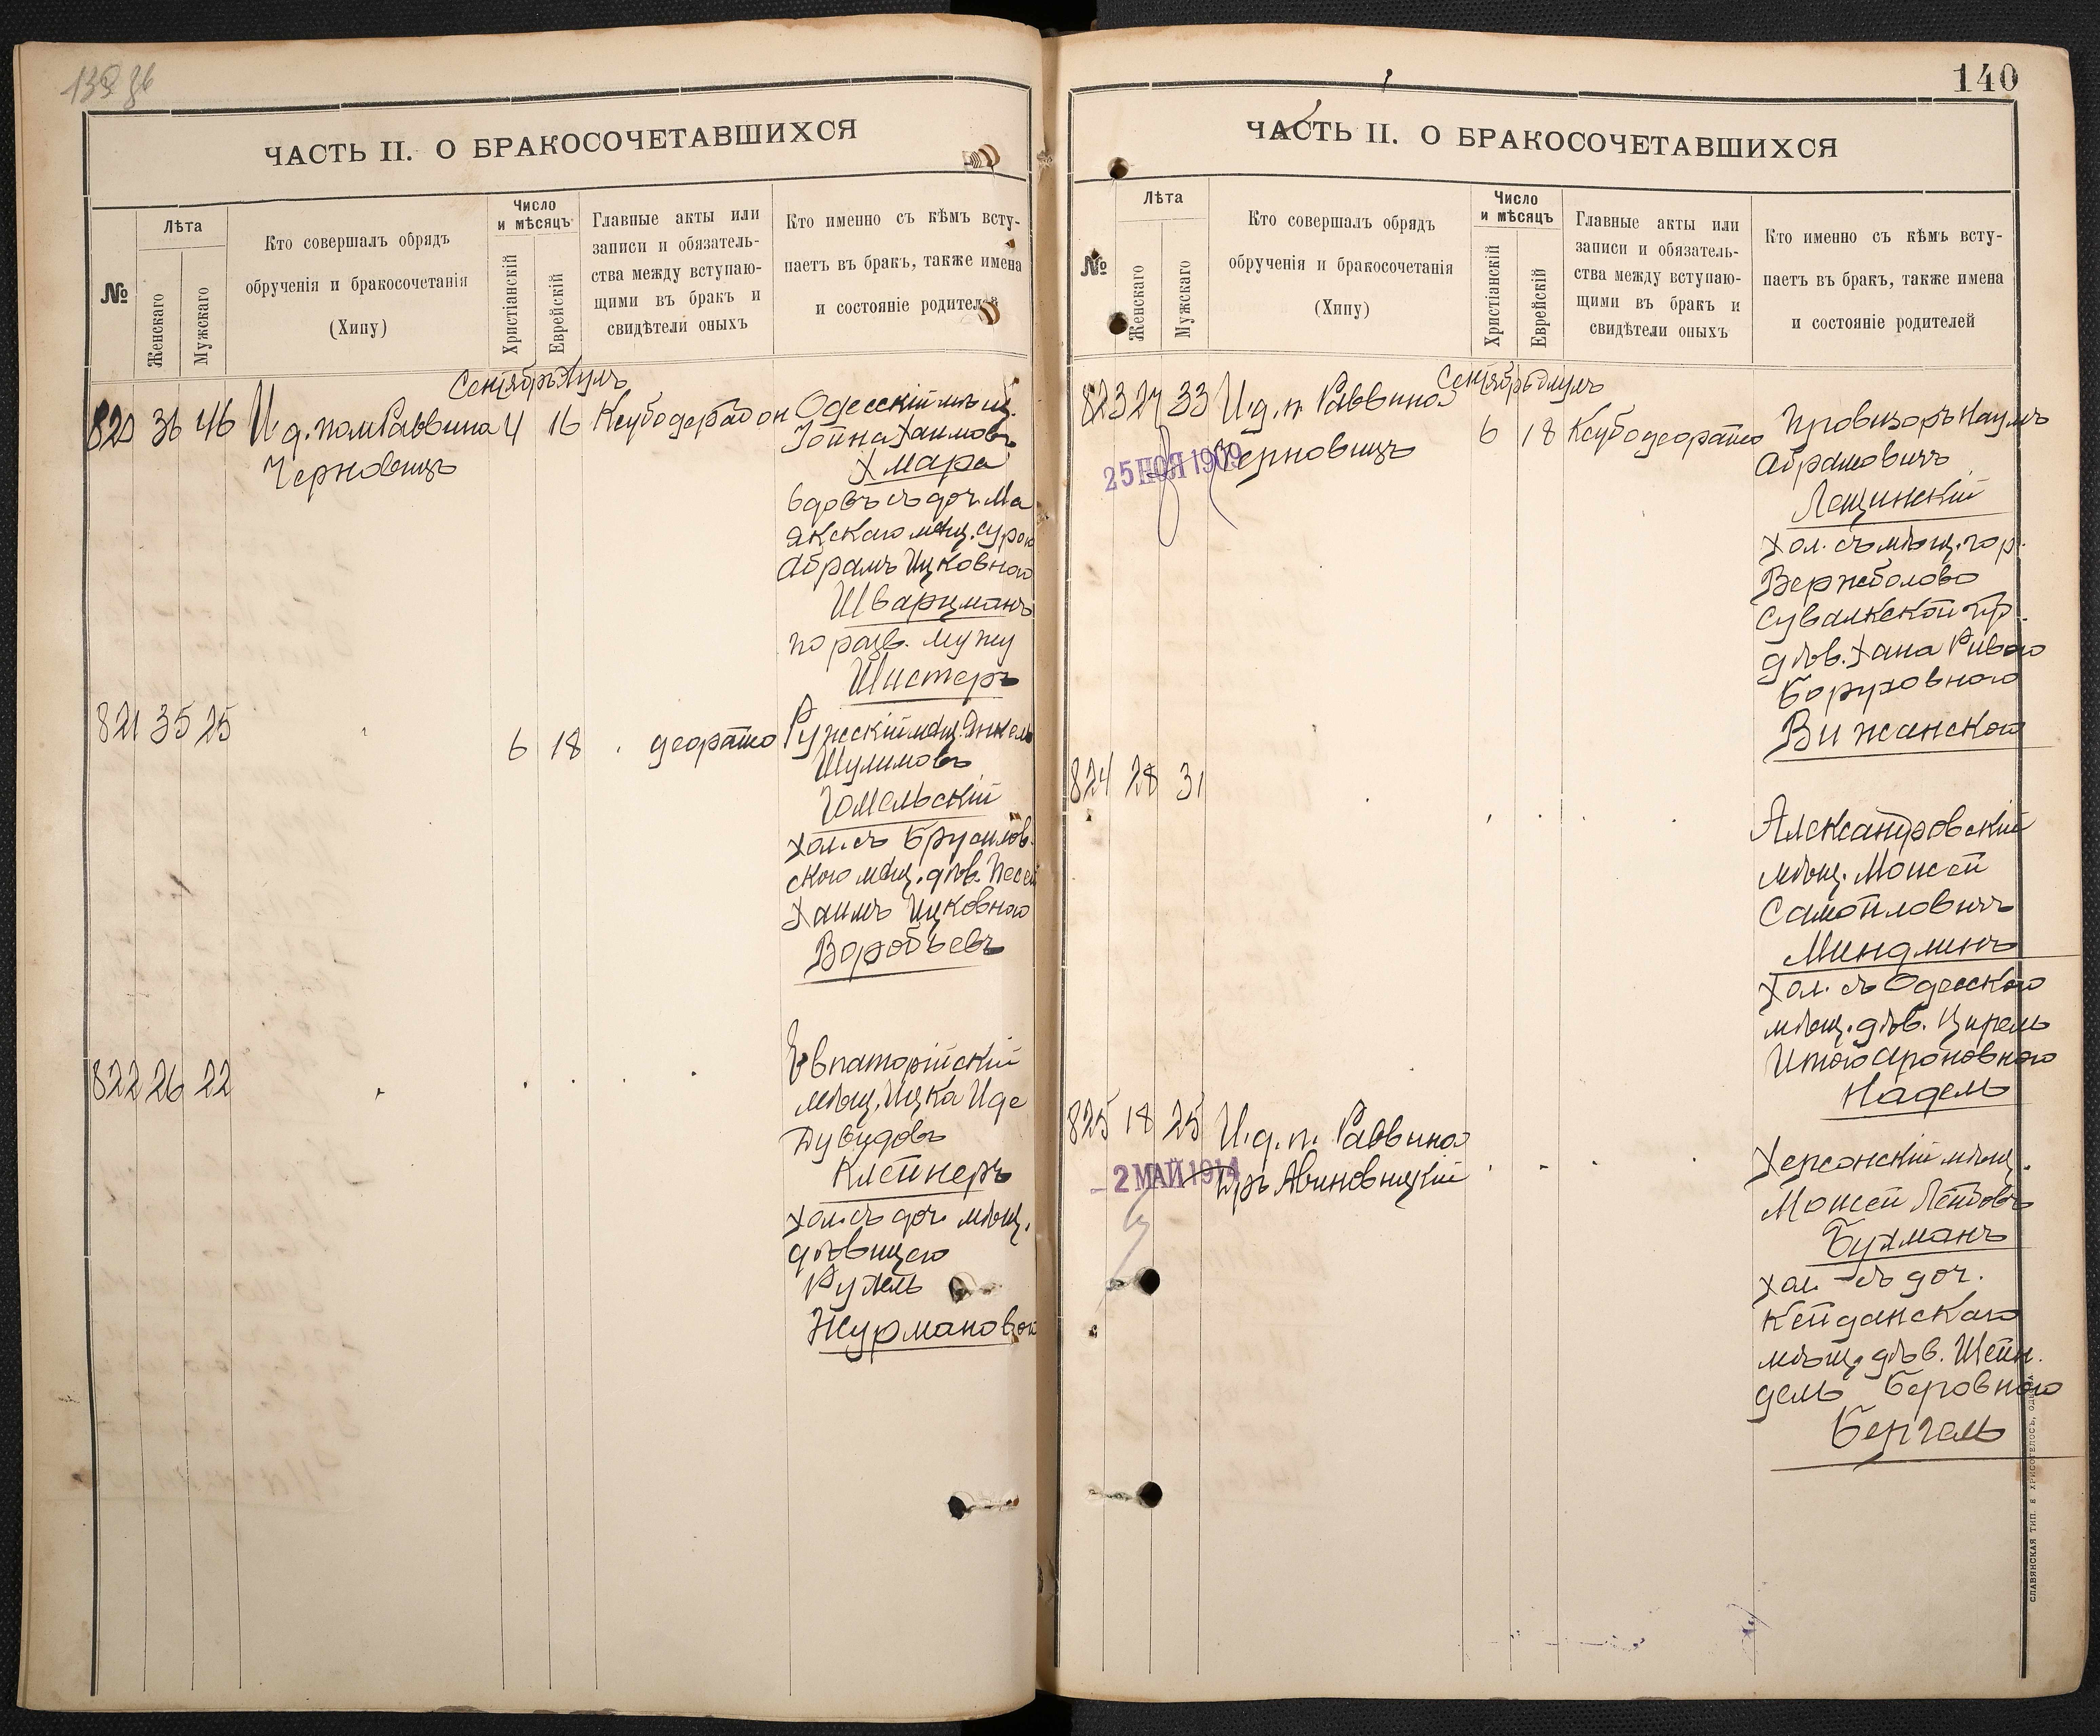 140
ЧАСТЬ II. О БРАКОСОЧЕТАВШИХСЯ
№
Лѣта
Женскаго
Мужскаго
Кто совершалъ обрядъ
обрученія и бракосочетанія
(Хипу)
Число
и мѣсяцъ
Христіанскій
Еврейскій
Главные акты или
записи и обязатель-
ства между вступаю-
щими въ бракъ и
свидѣтели оныхъ
Кто именно съ кѣмъ всту-
паетъ въ бракъ, также имена
и состояніе родителей
Сентябрь Элулъ
820 36 46 И. д. пом Раввина 4 16
Черновицъ
Одесскій мѣщ.
Іойна Хаимовъ
Хмара
вдовъ съ доч. Ма
якскаго мѣщ. Сурою
Абрамъ Ицковною
Шварцманъ
по разв. мужу
Шистеръ
821 35 25
6 18
Ружскій мѣщ. Янкель
Шулимовъ
Гомельскій
хол. съ Брусилов.
скою мѣщ. дѣв. Песей
Хаимъ Ицковною
Воробьевъ
822 26 22
Евпаторійскій
мѣщ. Ицка Иде
Дувидовъ
Клейнеръ
хол. съ доч. мѣщ.
дѣвицею
Рухель
Журмановой
ЧАСТЬ II. О БРАКОСОЧЕТАВШИХСЯ
№
Лѣта
Женскаго
Мужскаго
Кто совершалъ обрядъ
обрученія и бракосочетанія
(Хипу)
Число
и мѣсяцъ
Христіанскій
Еврейскій
Главные акты или
записи и обязатель-
ства между вступаю-
щими въ бракъ и
свидѣтели оныхъ
Кто именно съ кѣмъ всту-
паетъ въ бракъ, также имена
и состояніе родителей
Сентябрь Элулъ
823 27 33 И. д. п. Раввина
Черновицъ
6 18
25 НОЯ 1909
Провизоръ Наумъ
Абрамовичъ
Лещинскій
хол. съ мѣщ. гор.
Вержболово
Сувалкской гр.
дѣв. Хана Ривою
Боруховною
Вижанской
824 28 31
Александровскій
мѣщ. Моисей
Самойловичъ
Миндлинъ
хол. съ Одесскою
мѣщ. дѣв. Цирель
Итою Ароновною
Надель
825 18 25 И. д. п. Раввина
Д-ръ Авиновицкій
2 МАЙ 1914
Херсонскій мѣщ.
Моисей Лейбовъ
Бухманъ
хол. съ доч.
Кейданскаго
мѣщ. дѣв. Шейн.
дель Беровною
Бергель
СЛАВЯНСКАЯ ТИП. Е ХРИСОГЕЛОСЪ, ОДЕССА.